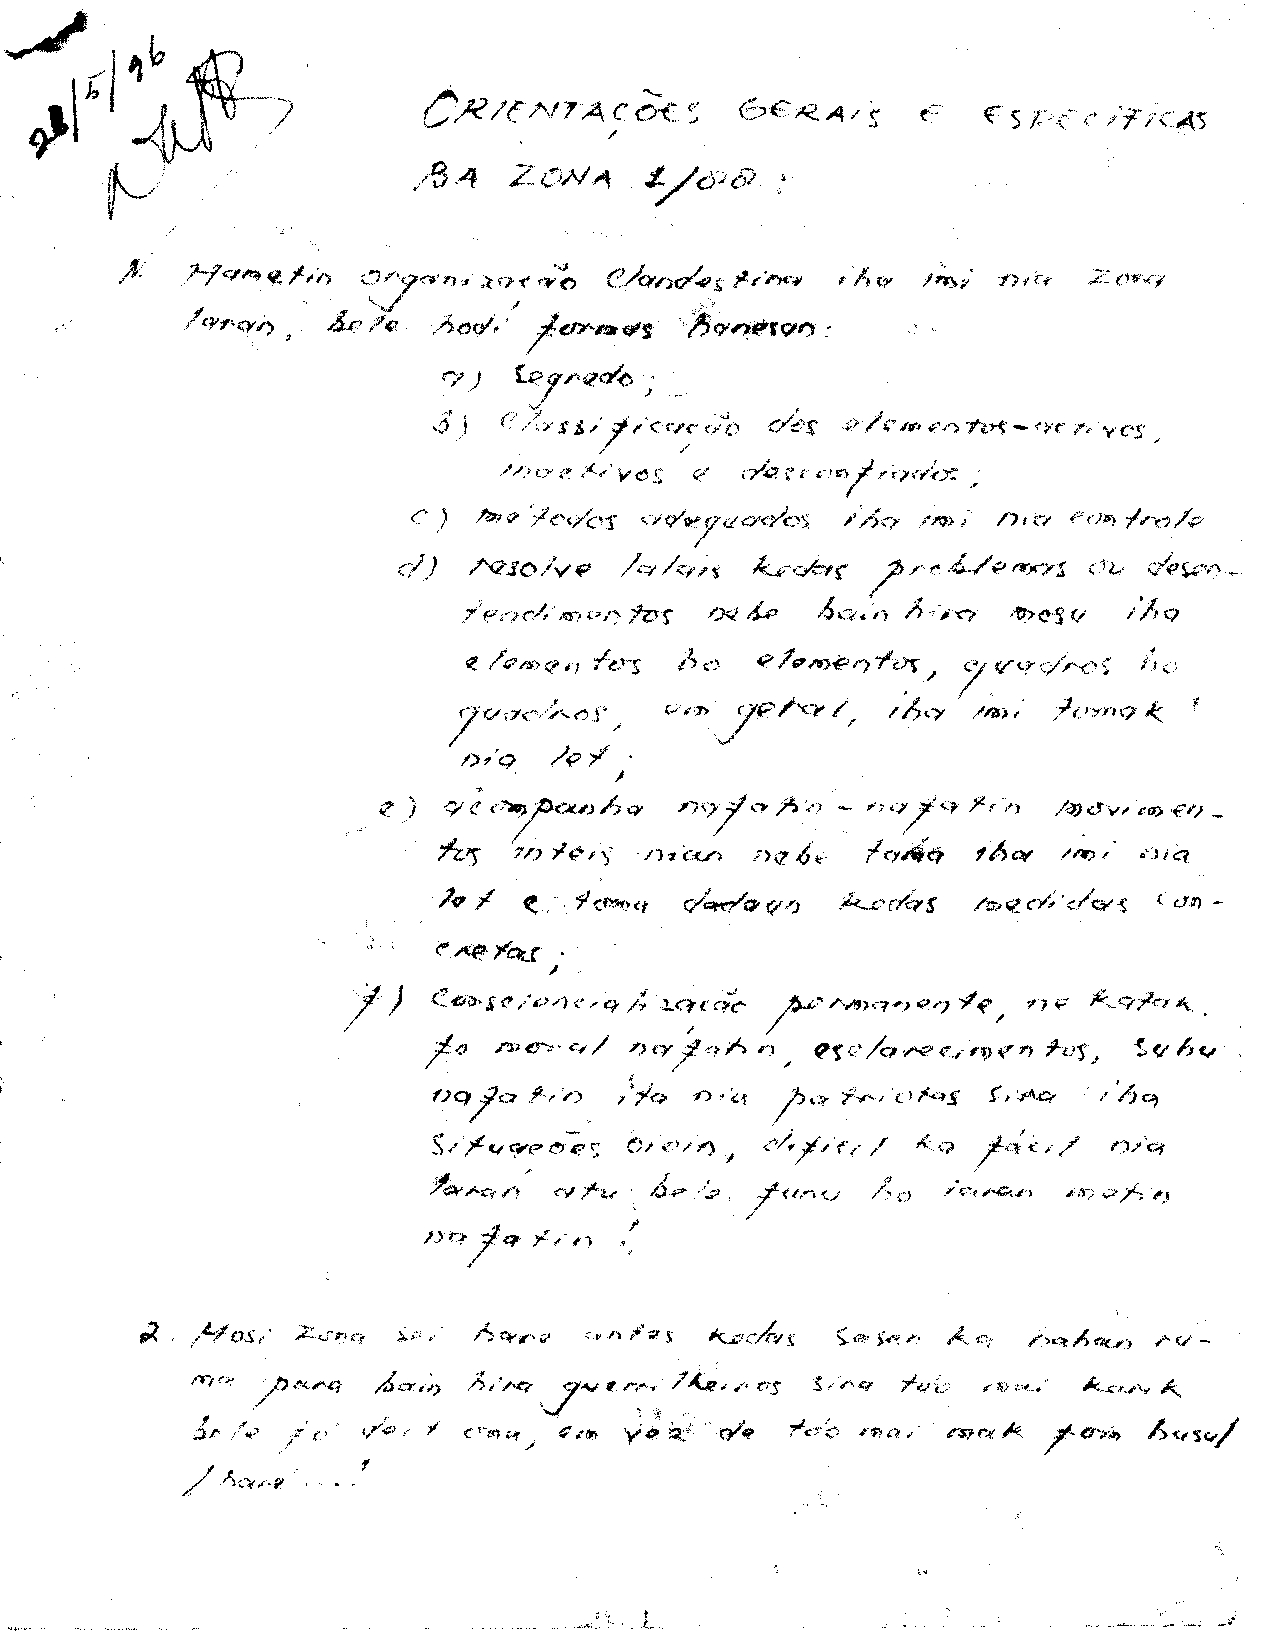 28/5/96
ORIENTAÇÕES GERAIS E ESPECÍFICAS
BA ZONA 1/88:
1. Hametin organização Clandestina iha imi nia zona
laran, bele hodi formas hanesan:
a) Segrado;
b) Classificação dos elementos-activos,
inactivos e desconfiados;
c) métodos adequados iha imi nia controle
d) resolve lalais kedas problemas ou desen-
tendimentos nebe bain hira mosu iha
elementos ho elementos, quadros ho
quadros, em geral, iha imi tomak
nia let;
e) acompanha nafatin-nafatin movimen-
tos inteis nian nebe tama iha imi nia
let e toma dadaun kedas medidas con-
cretas;
f) Consciencialização permanente, ne katak
fo moral nafatin, esclarecimentos, Subu
nafatin ita nia patriotas sira iha
Situações oioin, difícil ka fácil nia
laran atu bele funu ho laran metin
nafatin!
2. Mosi zona sei hare antes kedas Sasan ka hahan ru-
ma para bain hira guerrilheiros sira too mai karik
bele fo deit ona, em vez de too mai mak foin busul
/hare....!